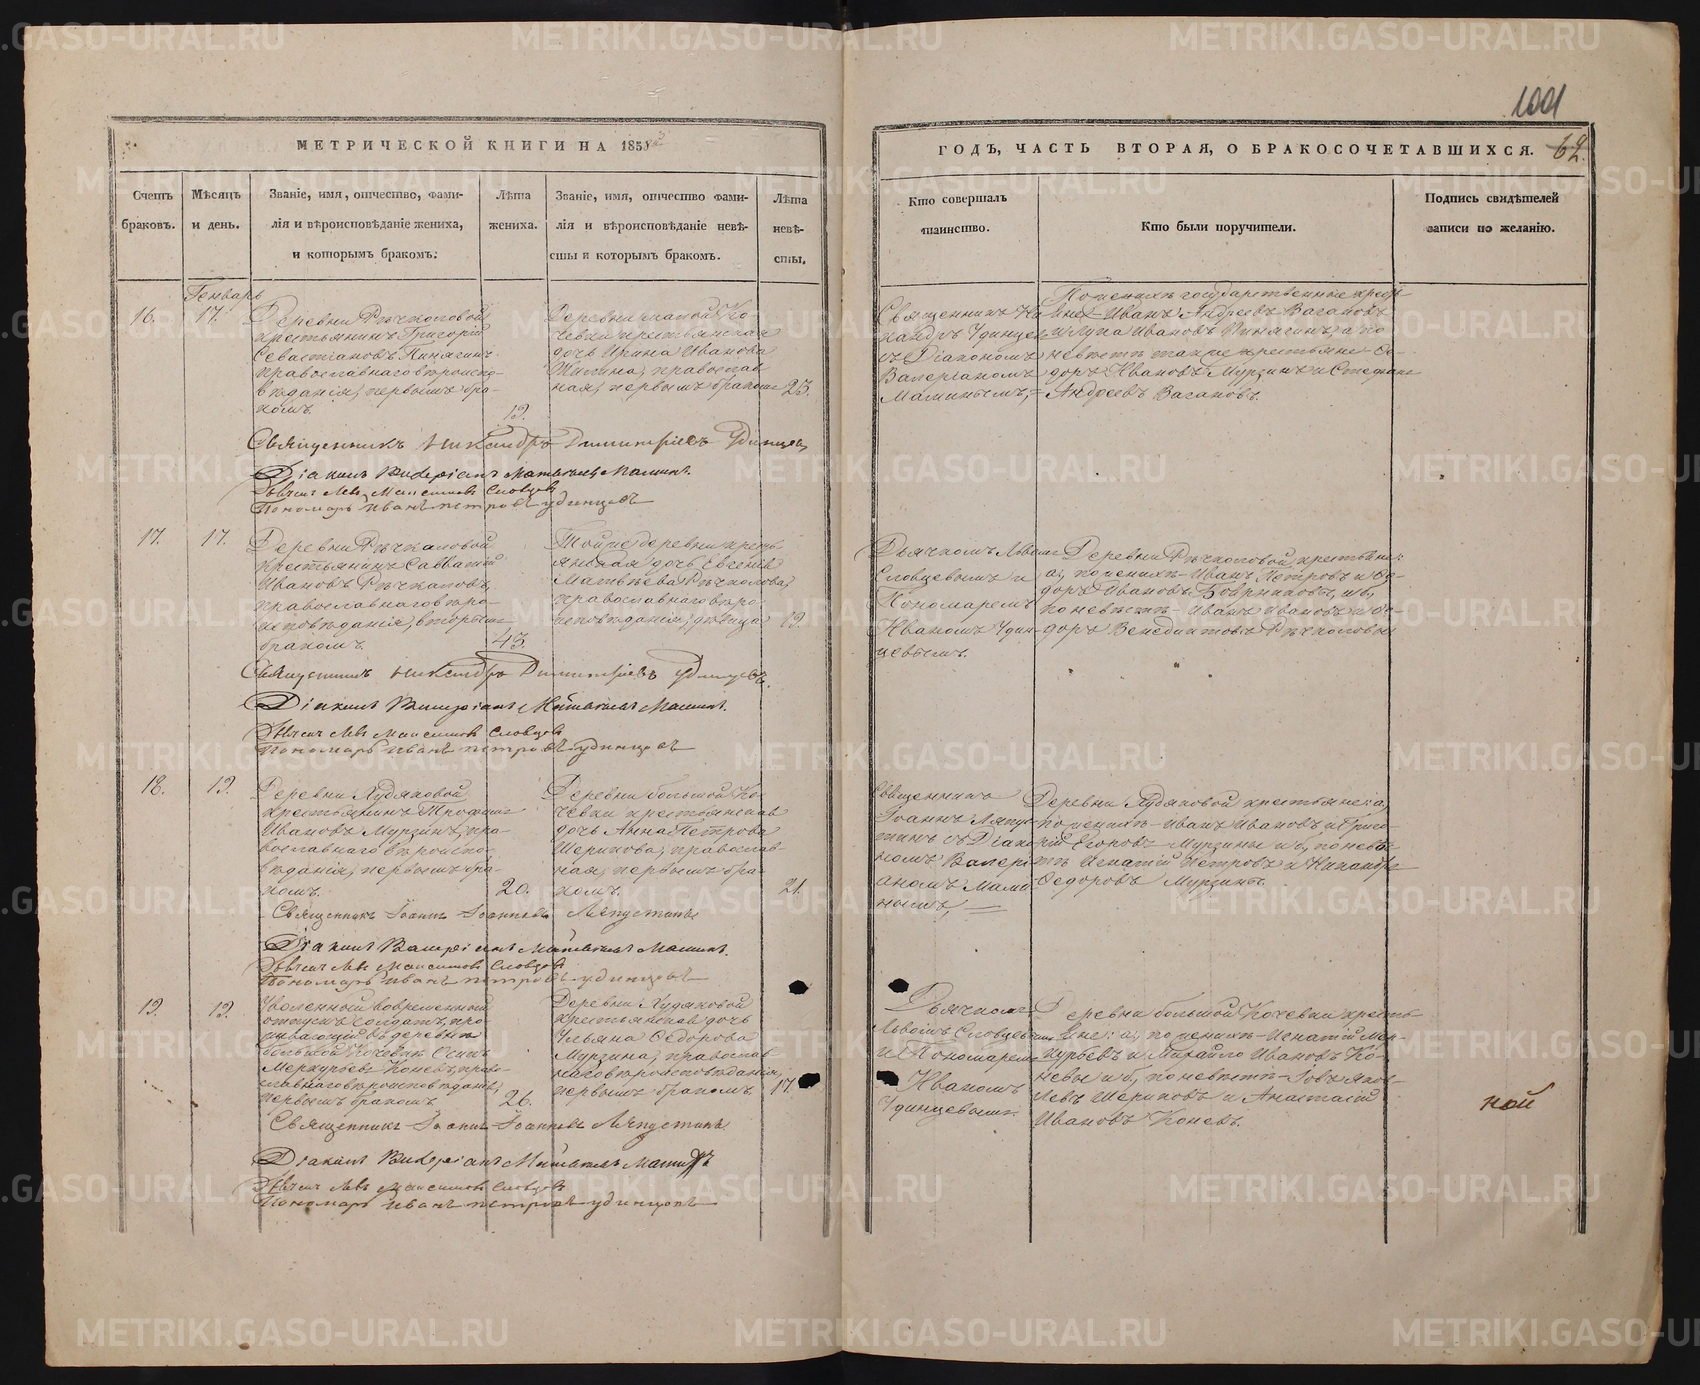 METRIKI.GASO-URAL.RU
1001
МЕТРИЧЕСКОЙ КНИГИ НА 1858
ГОДЪ, ЧАСТЬ ВТОРАЯ, О БРАКОСОЧЕТАВШИХСЯ. 62.
Счетъ браковъ.
Мѣсяцъ и день.
Званіе, имя, отчество, фами-
лія и вѣроисповѣданіе жениха,
и которымъ бракомъ.
Лѣта жениха.
Званіе, имя, отчество фами-
лія и вѣроисповѣданіе невѣ-
сты и которымъ бракомъ.
Лѣта невѣ-
сты.
Кто совершалъ
таинство.
Кто были поручители.
Подпись свидѣтелей
записи по желанію.
Генварь
16.
17.
Деревни Рѣчкаловой
крестьянинъ Григорій
Севастіановъ Пинягинъ
православнаго вѣроиспо-
вѣданія, первымъ бра-
комъ
19.
Деревни малой Ко-
чевки крестьянская
дочь Ирина Иванова
православ-
ная, первымъ бракомъ
23.
Священникъ Ни-
кандръ Удинцев
съ Діакономъ
Валеріаномъ
Маминымъ,
По женихѣ государственные крестья-
не Иванъ Андреевъ Вагановъ
и Лука Ивановъ Пинягинъ, а по
невѣстѣ такіе крестьяне Ѳе-
доръ Ивановъ Мурзинъ и Стефанъ
Андреевъ Вагановъ.
Священникъ Никандръ Димитріевъ Удинцевъ
Діаконъ Валеріанъ Матвѣевъ Маминъ.
Дьячекъ Левъ Максимовъ Словцовъ
Пономарь Иванъ Петровъ Удинцовъ
17.
17.
Деревни Рѣчкаловой
крестьянинъ Савватій
Ивановъ Рѣчкаловъ,
православнаго вѣро-
исповѣданія, вторымъ
бракомъ.
43.
Той же деревни кресть-
янская дочь Евгенія
Матвѣева Рѣчкалова,
православнаго вѣро-
исповѣданія, дѣвица
19.
Дьячкомъ Львомъ
Словцевымъ и
Пономаремъ
Иваномъ Удин-
цевымъ.
Деревни Рѣчкаловой крестьяне:
а, по женихѣ - Иванъ Петровъ и Ѳе-
доръ Ивановъ Бобрниковы, и в,
по невѣстѣ - Иванъ Ивановъ и Ѳе-
доръ Венедиктовъ Рѣчкаловы
Священникъ Никандръ Димитріевъ Удинцевъ.
Діаконъ Валеріанъ Матвѣевъ Маминъ.
Дьячекъ Левъ Максимовъ Словцовъ
Пономарь Иванъ Петровъ Удинцовъ
18.
19.
Деревни Худяковой
крестьянинъ Трофимъ
Ивановъ Мурзинъ, пра-
вославнаго вѣроиспо-
вѣданія, первымъ бра-
комъ.
20.
Деревни большой Ко-
чевки крестьянская
дочь Анна Петрова
Шерикова, православ-
ная, первымъ бра-
комъ.
21.
Священникъ
Іоаннъ Ляпус-
тинъ съ Діако-
номъ Валері-
аномъ Мами-
нымъ,
Деревни Худяковой крестьяне: а,
по женихѣ - Иванъ Ивановъ и Григо-
рій Егоровъ Мурзины и в, по невѣс-
тѣ Игнатій Петровъ и Никандръ
Ѳедоровъ Мурзинъ.
Священникъ Іоаннъ Іоанновъ Ляпустинъ
Діаконъ Валеріанъ Матвѣевъ Маминъ.
Дьячекъ Левъ Максимовъ Словцовъ
Пономарь Иванъ Петровъ Удинцовъ
19.
19.
Уволенный во временный
отпускъ солдатъ, про-
живающій въ деревнѣ
большой Кочевкѣ Осипъ
Меркурьевъ Коневъ, право-
славнаго вѣроисповѣданія,
первымъ бракомъ
26.
Деревни Худяковой
крестьянская дочь
Ульяна Ѳедорова
Мурзина, православ-
наго вѣроисповѣданія,
первымъ бракомъ.
17.
Дьячкомъ
Львомъ Словцевымъ
и Пономаремъ
Иваномъ
Удинцевымъ
Деревни большой Кочевки кресть-
яне: а, по женихѣ - Игнатій Мер-
курьевъ и Михайло Ивановъ Ко-
невы и б, по невѣстѣ - Іовъ Яков-
левъ Шериковъ и Анастасій
Ивановъ Коневъ.
Священникъ Іоаннъ Іоанновъ Ляпустинъ
Діаконъ Валеріанъ Матвѣевъ Маминъ
Дьячекъ Левъ Максимовъ Словцовъ
Пономарь Иванъ Петровъ Удинцовъ
ной